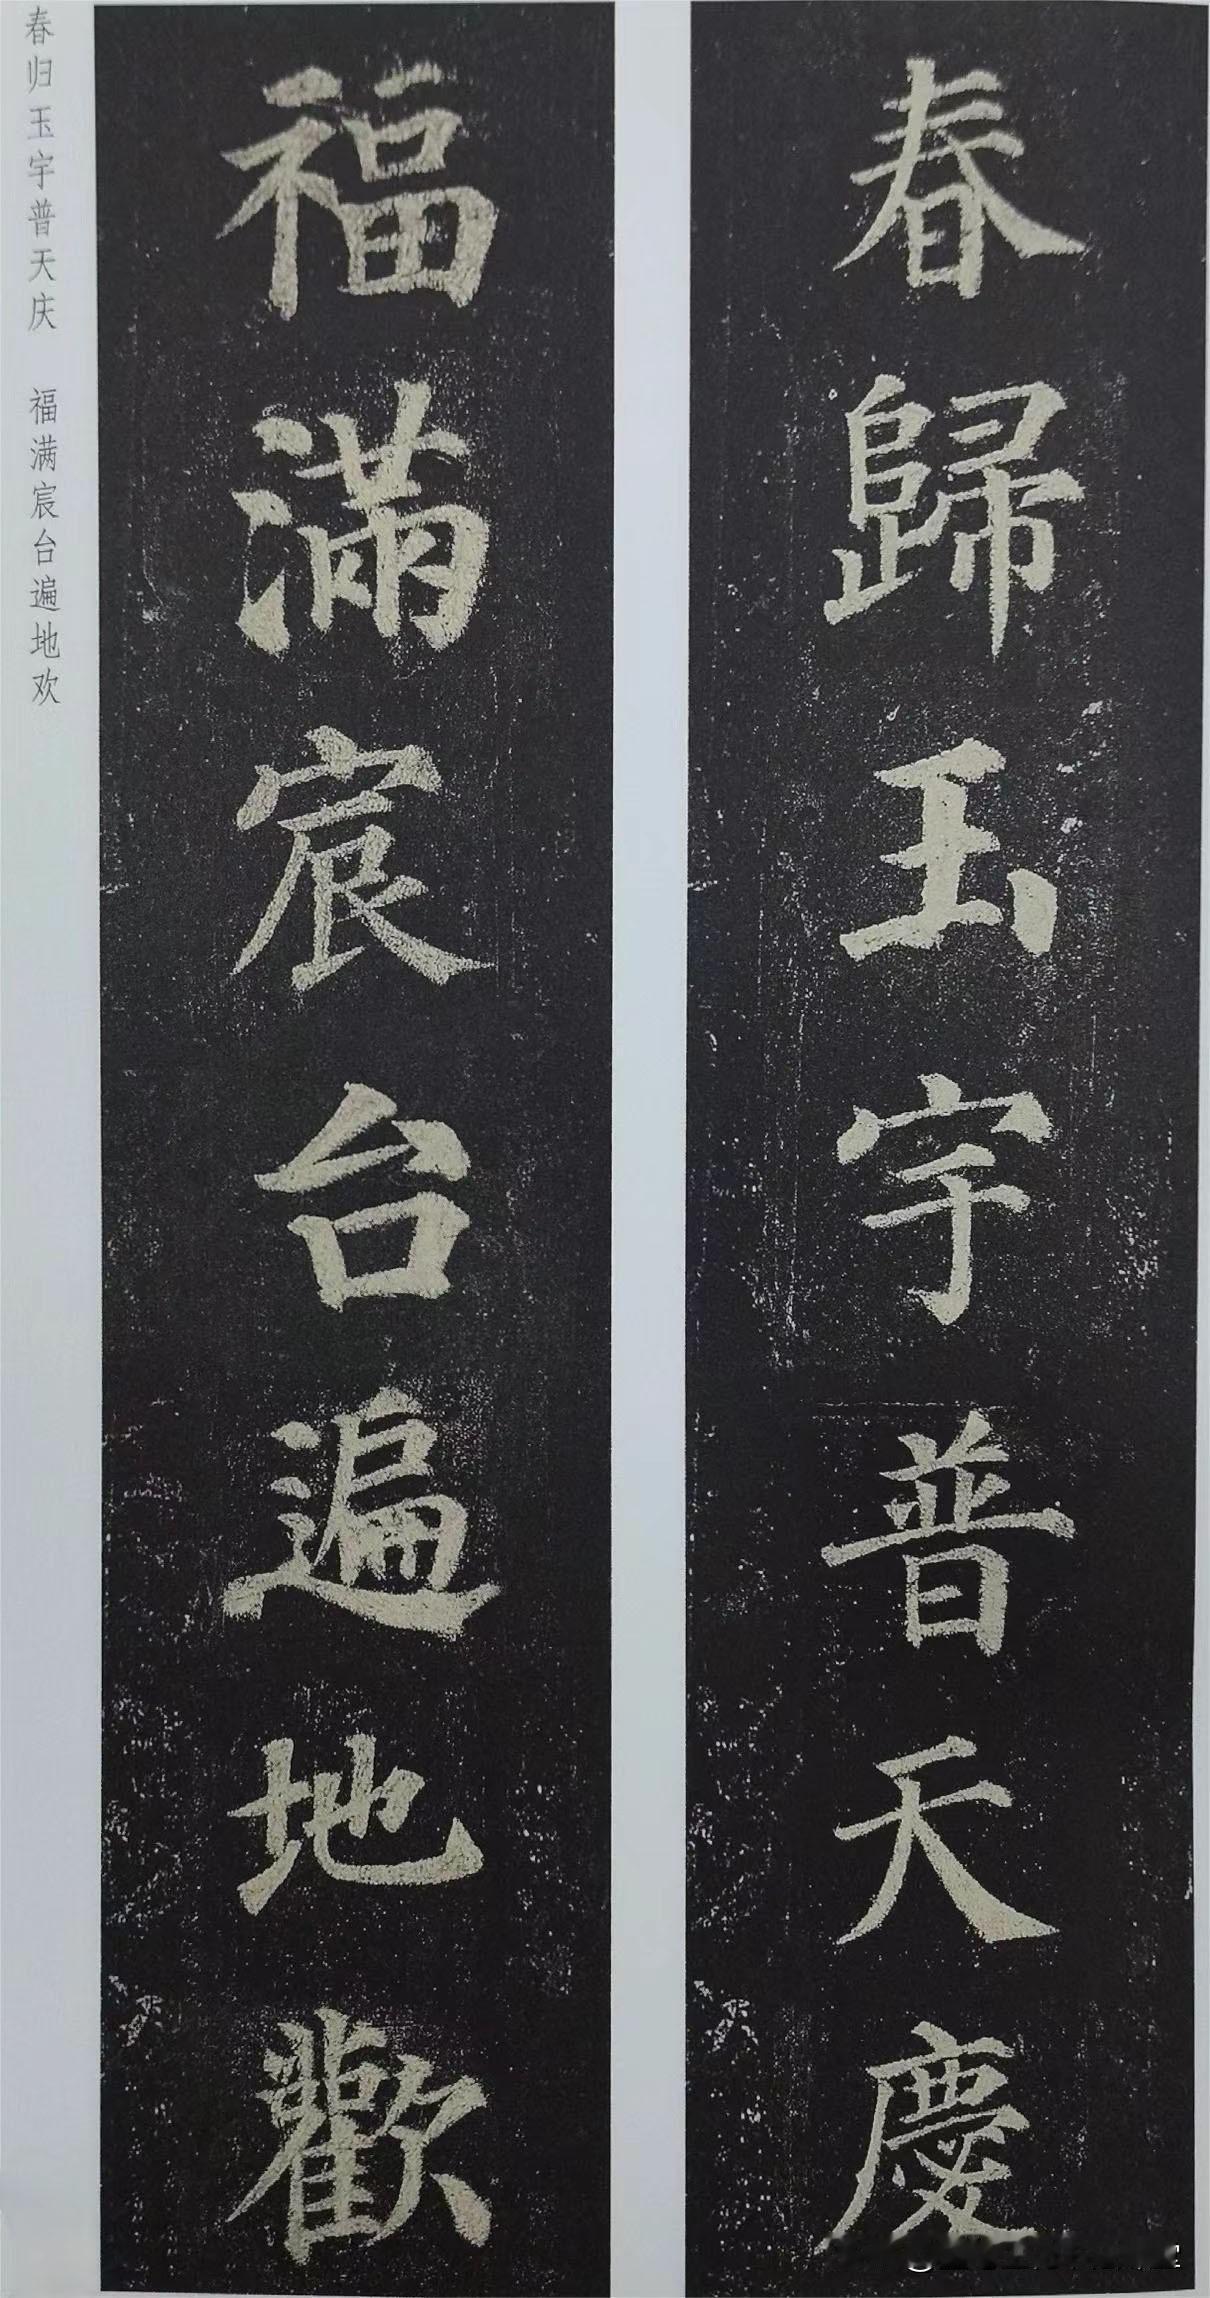 春歸玉宇普天慶
福滿宸台遍地歡
春归玉宇普天庆 福满宸台遍地欢